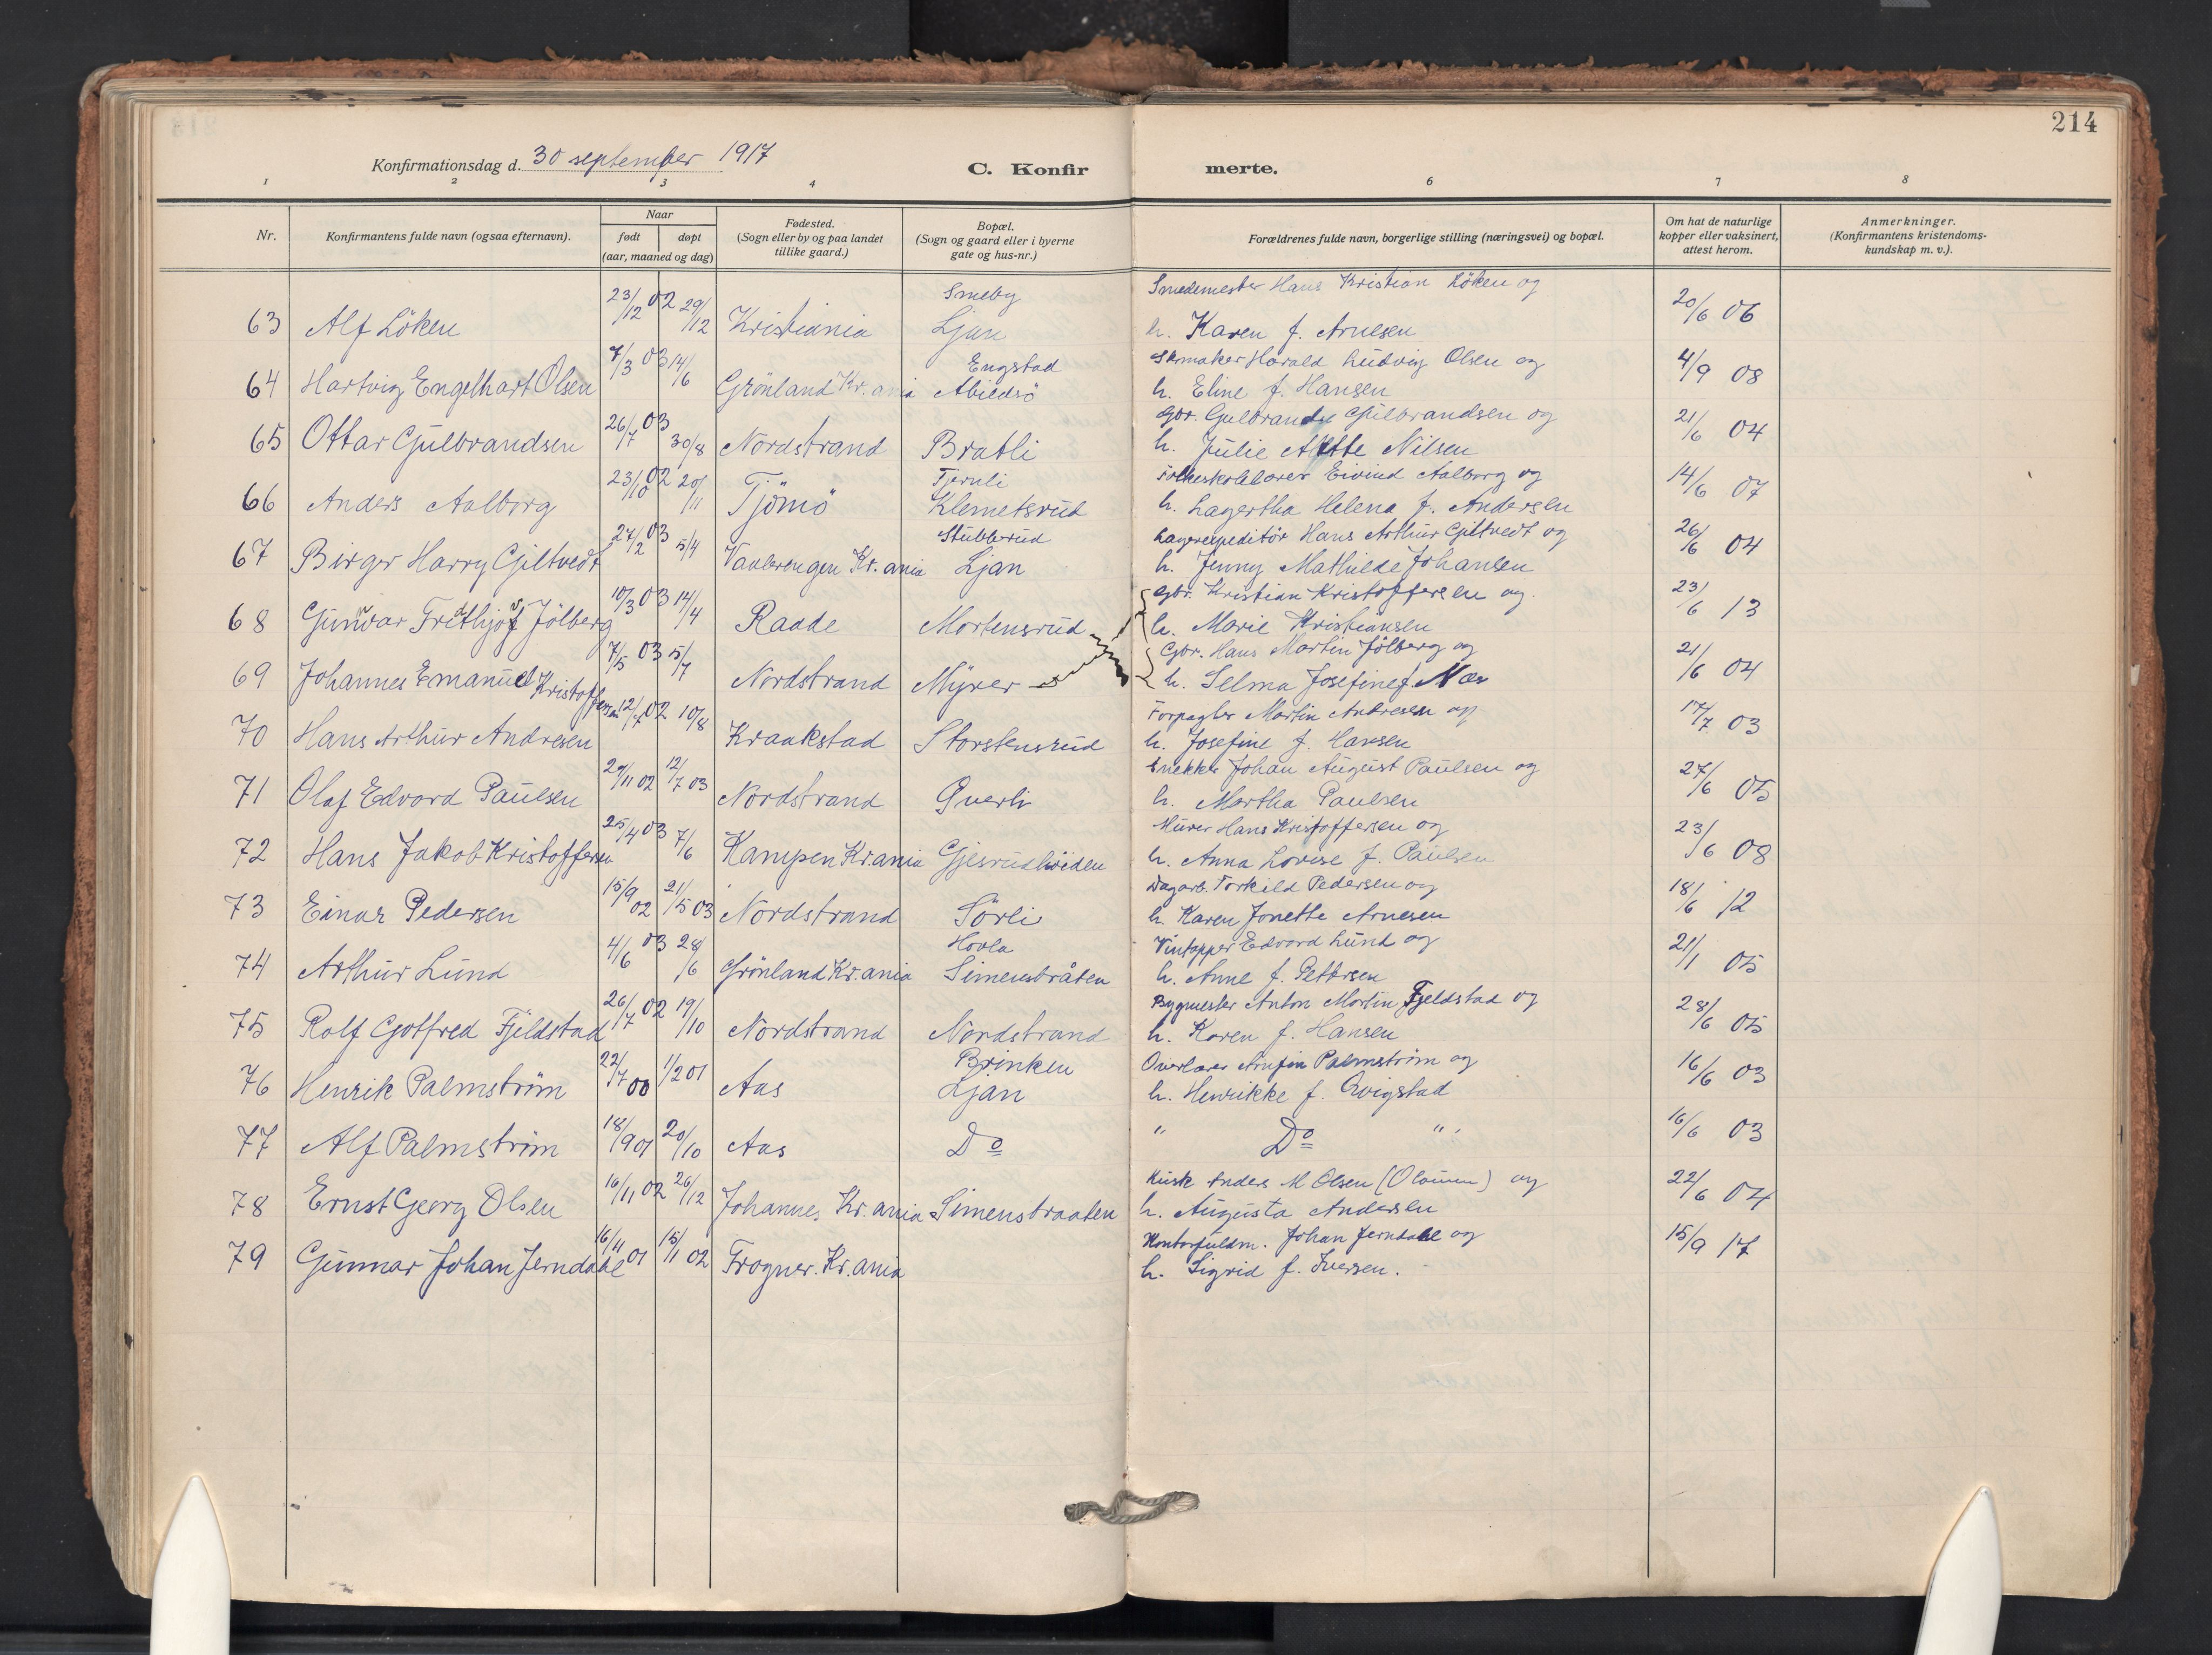 214
Konfirmationsdag d. 30 september 1917
C. Konfir merte.
1 2 3 4 6 7 8
Nr.
Konfirmantens fulde navn (ogsaa efternavn).
Naar
født døpt
(aar, maaned og dag)
Fødested.
(Sogn eller by og paa landet
tillike gaard.)
Bopæl.
(Sogn og gaard eller i byerne
gate og hus-nr.)
Forældrenes fulde navn, borgerlige stilling (næringsvei) og bopæl.
Om hat de naturlige
kopper eller vaksinert,
attest herom.
Anmerkninger.
(Konfirmantens kristendoms-
kundskap m. v.).
Smeby Smedemester Hans Kristian Löken og
63 Alf Löken 23/12 02 29/12 Kristiania Ljan h. Karen f. Arnesen 20/6 06
Engstad Skomaker Harald Ludvig Olsen og
64 Hartvig Engelhart Olsen 7/3 03 14/6 Grönland Kr.ania Abildsö h. Eline f. Hansen 4/9 08
Gbr. Gulbrand Gulbrandsen og
65 Ottar Gulbrandsen 26/7 03 30/8 Nordstrand Bratli h. Julie Alette Nilsen 21/6 04
Fjernli Folkeskolelærer Eivind Aalborg og
66 Anders Aalborg 23/10 02 20/11 Tjömö Klemetsrud h. Lagertha Helena f. Andersen 14/6 07
Stubberud Lagerexpeditör Hans Arthur Gjeltvedt og
67 Birger Harry Gjeltvedt 27/2 03 5/4 Vaalerengen Kr.ania Ljan h. Jenny Mathilde Johansen 26/6 04
Gbr. Kristian Kristoffersen og
68 Gunvar Fridthjof Jölberg 10/3 03 14/4 Raade Mortensrud h. Marie Kristiansen 23/6 13
Gbr. Hans Martin Jölberg og
69 Johannes Emanuel Kristoffersen 7/5 03 5/7 Nordstrand Myrer h. Selma Josefine f. Næs 21/6 04
Forpagter Martin Andresen og
70 Hans Arthur Andresen 12/7 02 10/8 Kraakstad Storstensrud h. Josefine f. Hansen 17/7 03
Snekker Johan August Paulsen og
71 Olaf Edvard Paulsen 27/11 02 12/7 03 Nordstrand Qverli h. Martha Paulsen 27/6 05
Murer Hans Kristoffersen og
72 Hans Jakob Kristoffersen 25/4 03 7/6 Kampen Kr.ania Gjersrudhøiden h. Anna Lovise f. Paulsen 23/6 08
Dagarb. Torkild Pedersen og
73 Einar Pedersen 15/9 02 21/5 03 Nordstrand Sörli h. Karen Jonette Arnesen 18/6 12
Hovla Vintapper Edvard Lund og
74 Arthur Lund 4/6 03 28/6 Grönland Kr.ania Simensbråten h. Anne f. Pettersen 21/1 05
Bygmester Anton Martin Fjeldstad og
75 Rolf Gotfred Fjeldstad 26/7 02 19/10 Nordstrand Nordstrand h. Karen f. Hansen 28/6 05
Brinken Overlærer Arnfin Palmström og
76 Henrik Palmström 22/7 00 1/2 01 Aas Ljan h. Henrikke f. Qvigstad 16/6 03
77 Alf Palmström 18/9 01 20/10 Aas Do " Do " 16/6 03
Kusk Anders M Olsen (Olaussen) og
78 Ernst Georg Olsen 16/11 02 26/12 Johannes Kr.ania Simensbraaten h. Augusta Andersen 22/6 04
Kontorfuldm. Johan Jerndahl og
79 Gunnar Johan Jerndahl 16/11 01 15/1 02 Frogner. Kr.ania h. Sigrid f. Iversen. 15/9 17